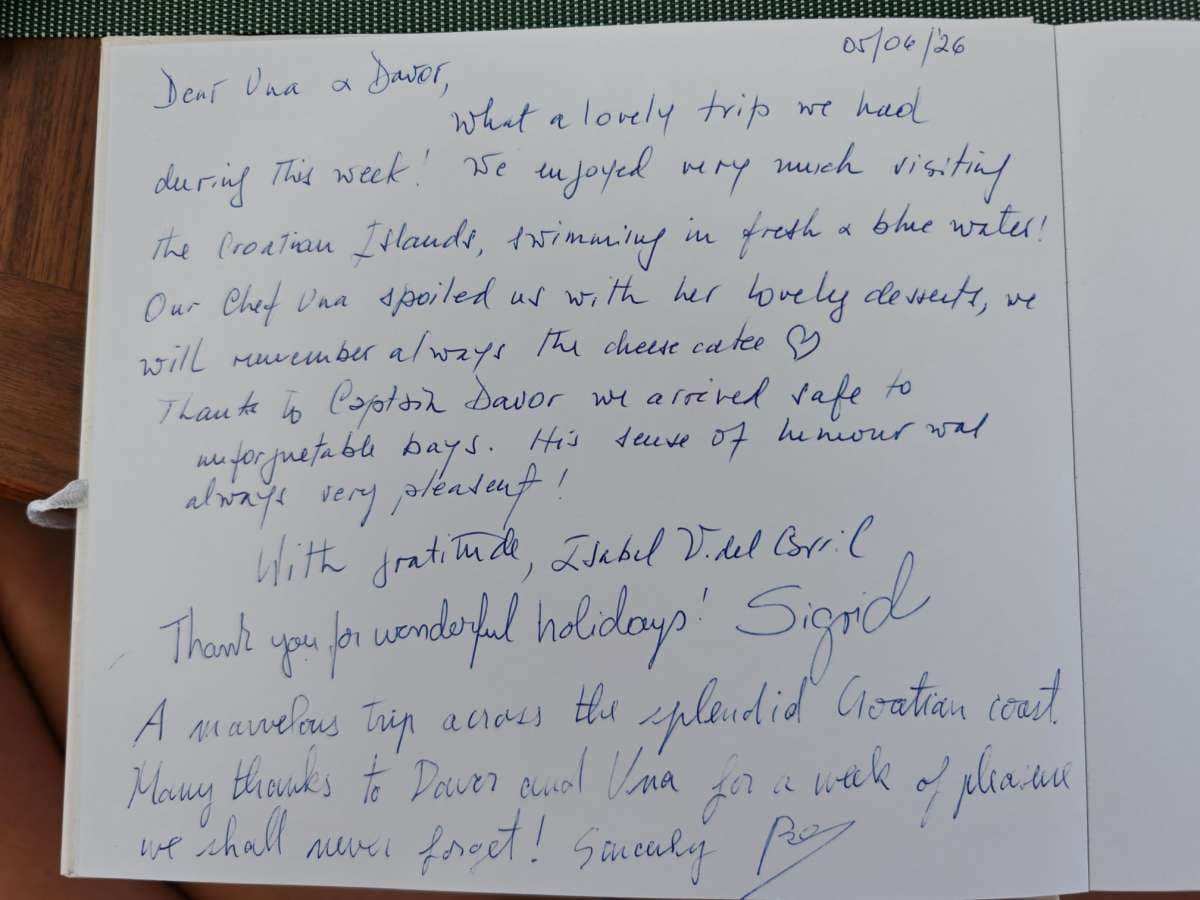 05/06/'26
Dear Una & Davor,
What a lovely trip we had
during this week! We enjoyed very much visiting
the Croatian Islands, swimming in fresh & blue water!
Our Chef Una spoiled us with her lovely desserts, we
will remember always the cheese catee ♡
Thanks to Captain Davor we arrived safe to
unforguetable bays. His sense of humour was
always very pleasent!
With gratitude, Isabel V. del Carril
Thank you for wonderful holidays! Sigrid
A marvelous trip across the splendid Croatian coast.
Many thanks to Davor and Una for a week of pleasure
we shall never forget! Sincerely